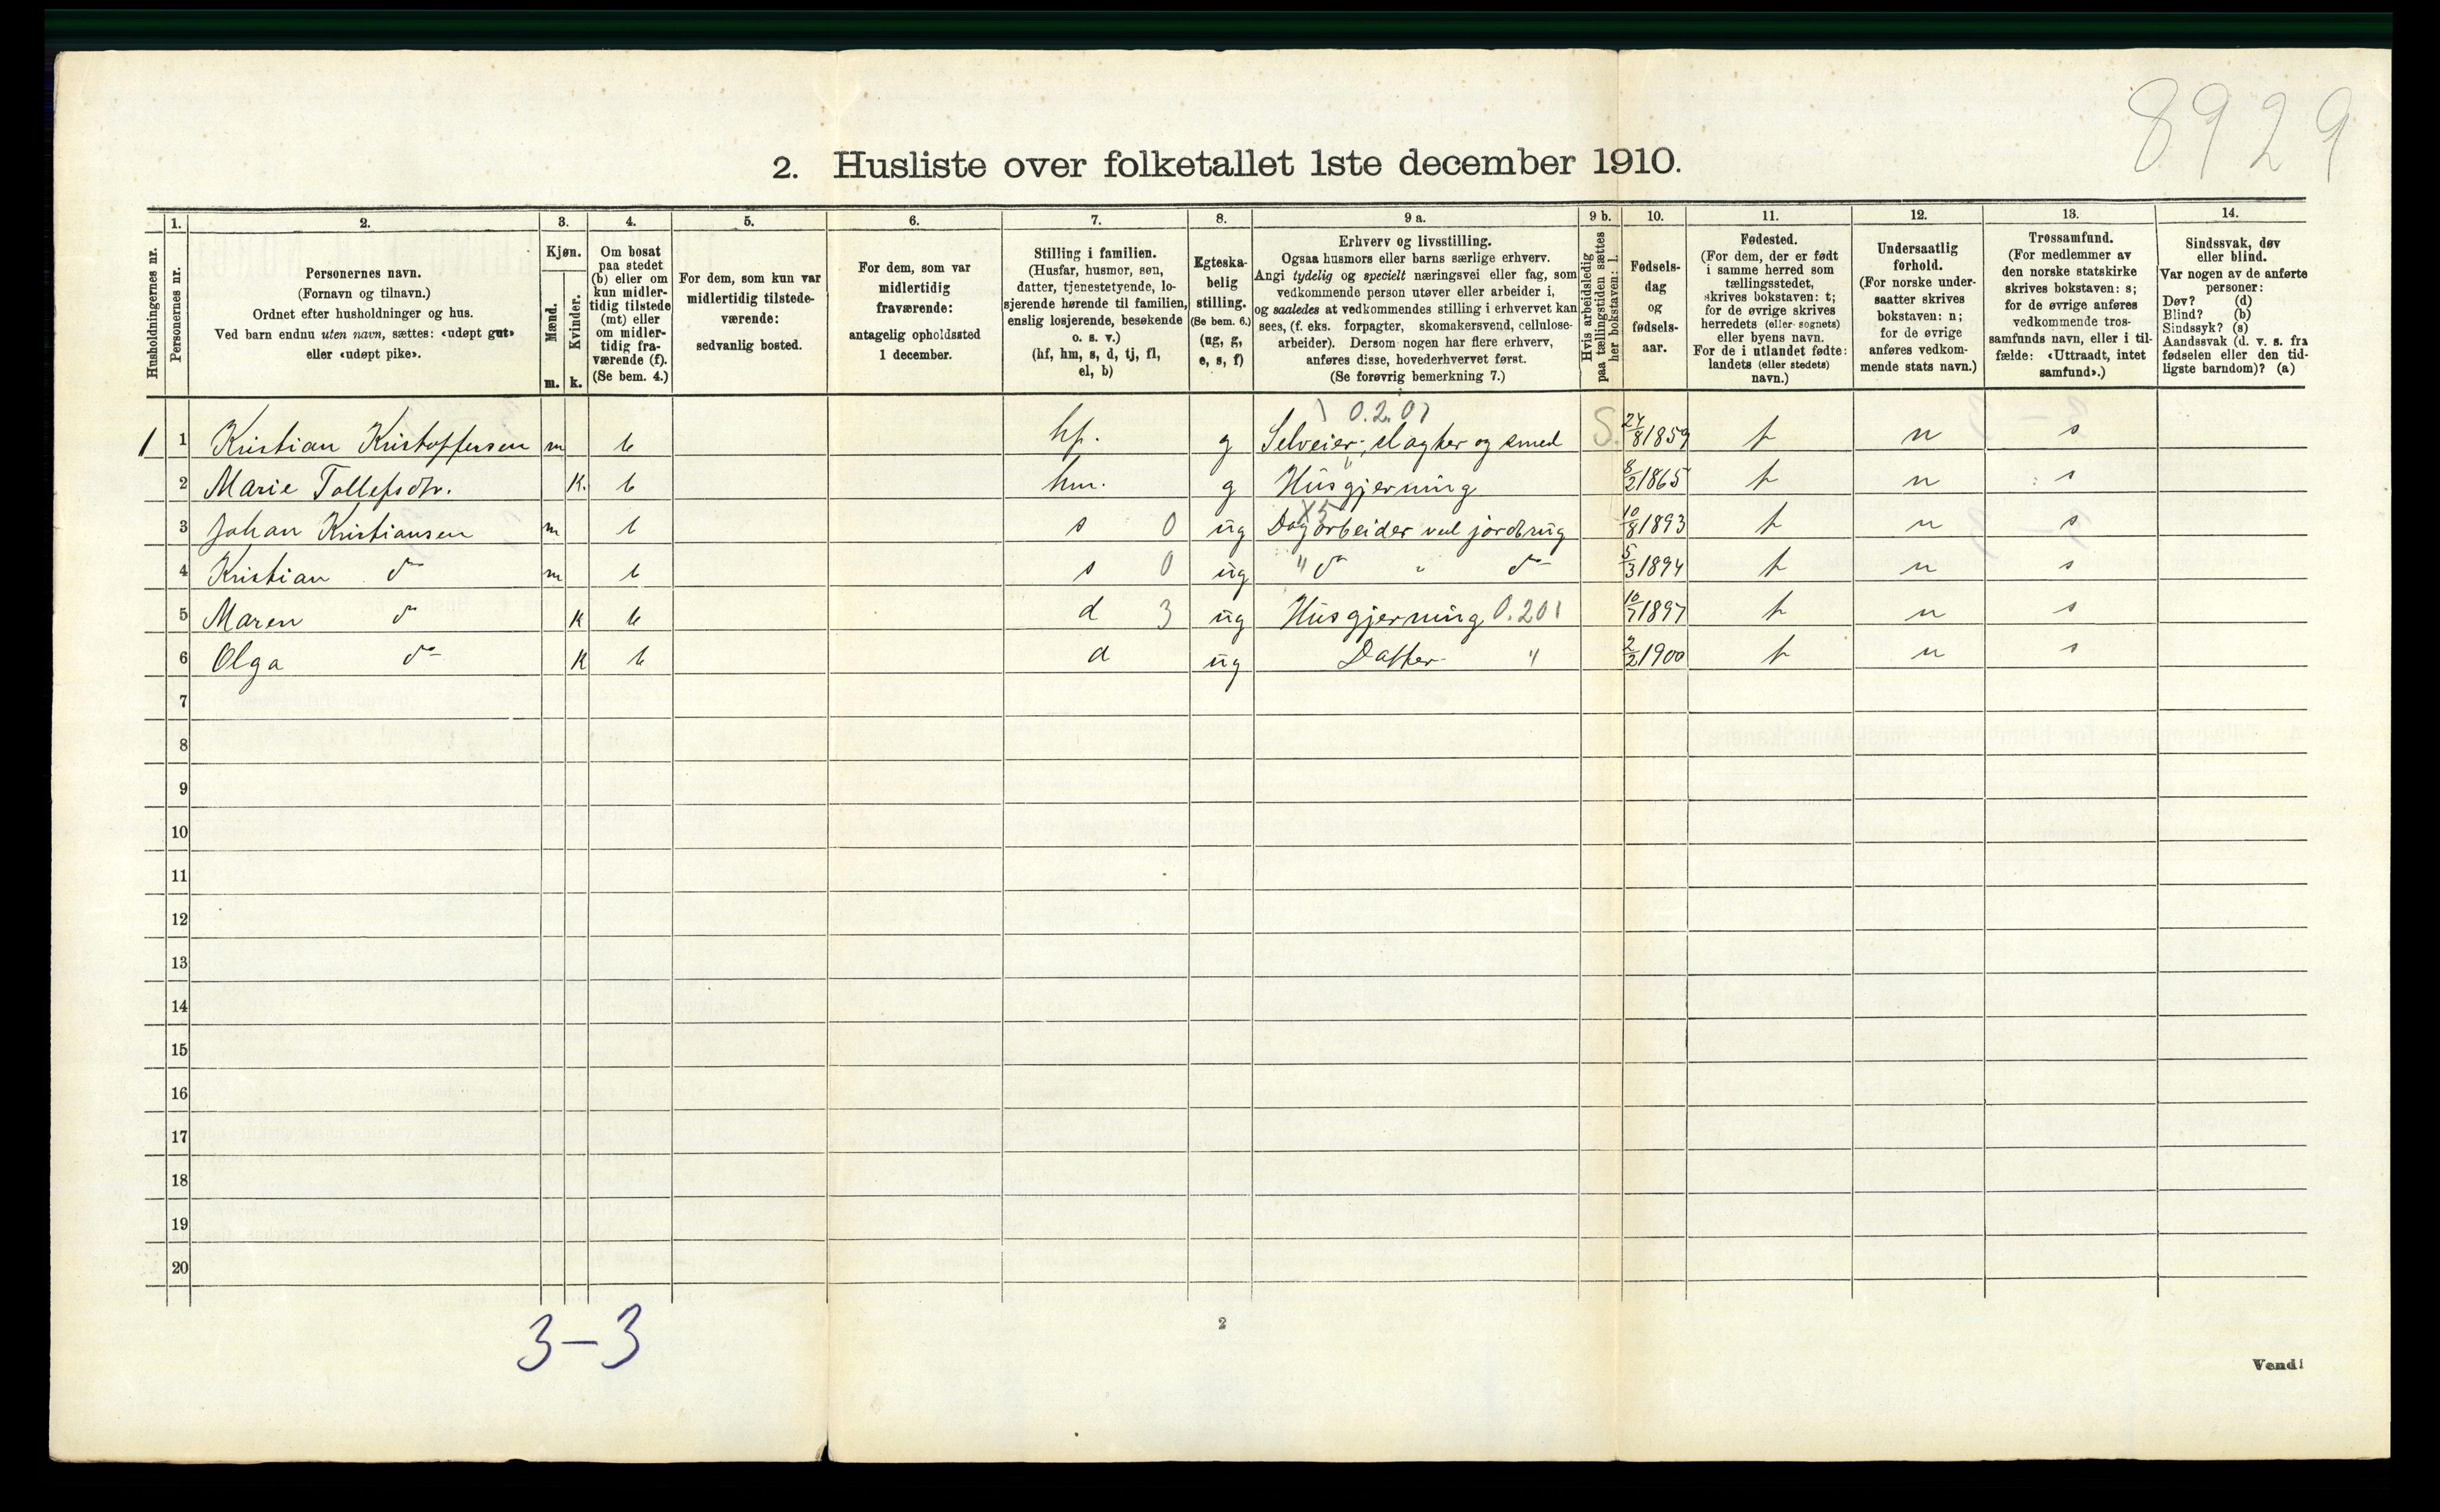 8929
2. Husliste over folketallet 1ste december 1910.
Husholdningernes nr.
1.
Personernes nr.
2.
Personernes navn.
(Fornavn og tilnavn.)
Ordnet efter husholdninger og hus.
Ved barn endnu uten navn, sættes: «udøpt gut»
eller «udøpt pike».
3.
Kjøn.
Mænd.
m.
Kvinder.
k.
4.
Om bosat
paa stedet
(b) eller om
kun midler-
tidig tilstede
(mt) eller
om midler-
tidig fra-
værende (f).
(Se bem. 4.)
5.
For dem, som kun var
midlertidig tilstede-
værende:
sedvanlig bosted.
6.
For dem, som var
midlertidig
fraværende:
antagelig opholdssted
1 december.
7.
Stilling i familien.
(Husfar, husmor, søn,
datter, tjenestetyende, lo-
sjerende hørende til familien,
enslig losjerende, besøkende
o. s. v.)
(hf, hm, s, d, tj, fl,
el, b)
8.
Egteska-
belig
stilling.
(Se bem. 6.)
(ug, g,
e, s, f)
9 a.
Erhverv og livsstilling.
Ogsaa husmors eller barns særlige erhverv.
Angi tydelig og specielt næringsvei eller fag, som
vedkommende person utøver eller arbeider i,
og saaledes at vedkommendes stilling i erhvervet kan
sees, (f. eks. forpagter, skomakersvend, cellulose-
arbeider). Dersom nogen har flere erhverv,
anføres disse, hovederhvervet først.
(Se forøvrig bemerkning 7.)
9 b.
Hvis arbeidsledig
paa tællingstiden sættes
her bokstaven: l.
10.
Fødsels-
dag
og
fødsels-
aar.
11.
Fødested.
(For dem, der er født
i samme herred som
tællingsstedet,
skrives bokstaven: t;
for de øvrige skrives
herredets (eller sognets)
eller byens navn.
For de i utlandet fødte:
landets (eller stedets)
navn.)
12.
Undersaatlig
forhold.
(For norske under-
saatter skrives
bokstaven: n;
for de øvrige
anføres vedkom-
mende stats navn.)
13.
Trossamfund.
(For medlemmer av
den norske statskirke
skrives bokstaven: s;
for de øvrige anføres
vedkommende tros-
samfunds navn, eller i til-
fælde: «Uttraadt, intet
samfund».)
14.
Sindssvak, døv
eller blind.
Var nogen av de anførte
personer:
Døv? (d)
Blind? (b)
Sindssyk? (s)
Aandssvak (d. v. s. fra
fødselen eller den tid-
ligste barndom)? (a)
0.2.01
1 1 Kristian Kristoffersen m b hf. g Selveier, slagter og smed S. 27/8 1859 t n s
2 Marie Tollefsdtr. K. b hm. g Husgjerning 8/2 1865 t n s
X5
3 Johan Kristiansen m b s 0 ug Dagarbeider ved jordbrug 10/8 1893 t n s
4 Kristian do m b s 0 ug " do " do 5/3 1894 t n s
5 Maren do K b d 3 ug Husgjerning 0.201 10/7 1897 t n s
6 Olga do K b d ug Datter " 2/2 1900 t n s
7
8
9
10
11
12
13
14
15
16
17
18
19
20
3-3
2
Vend!